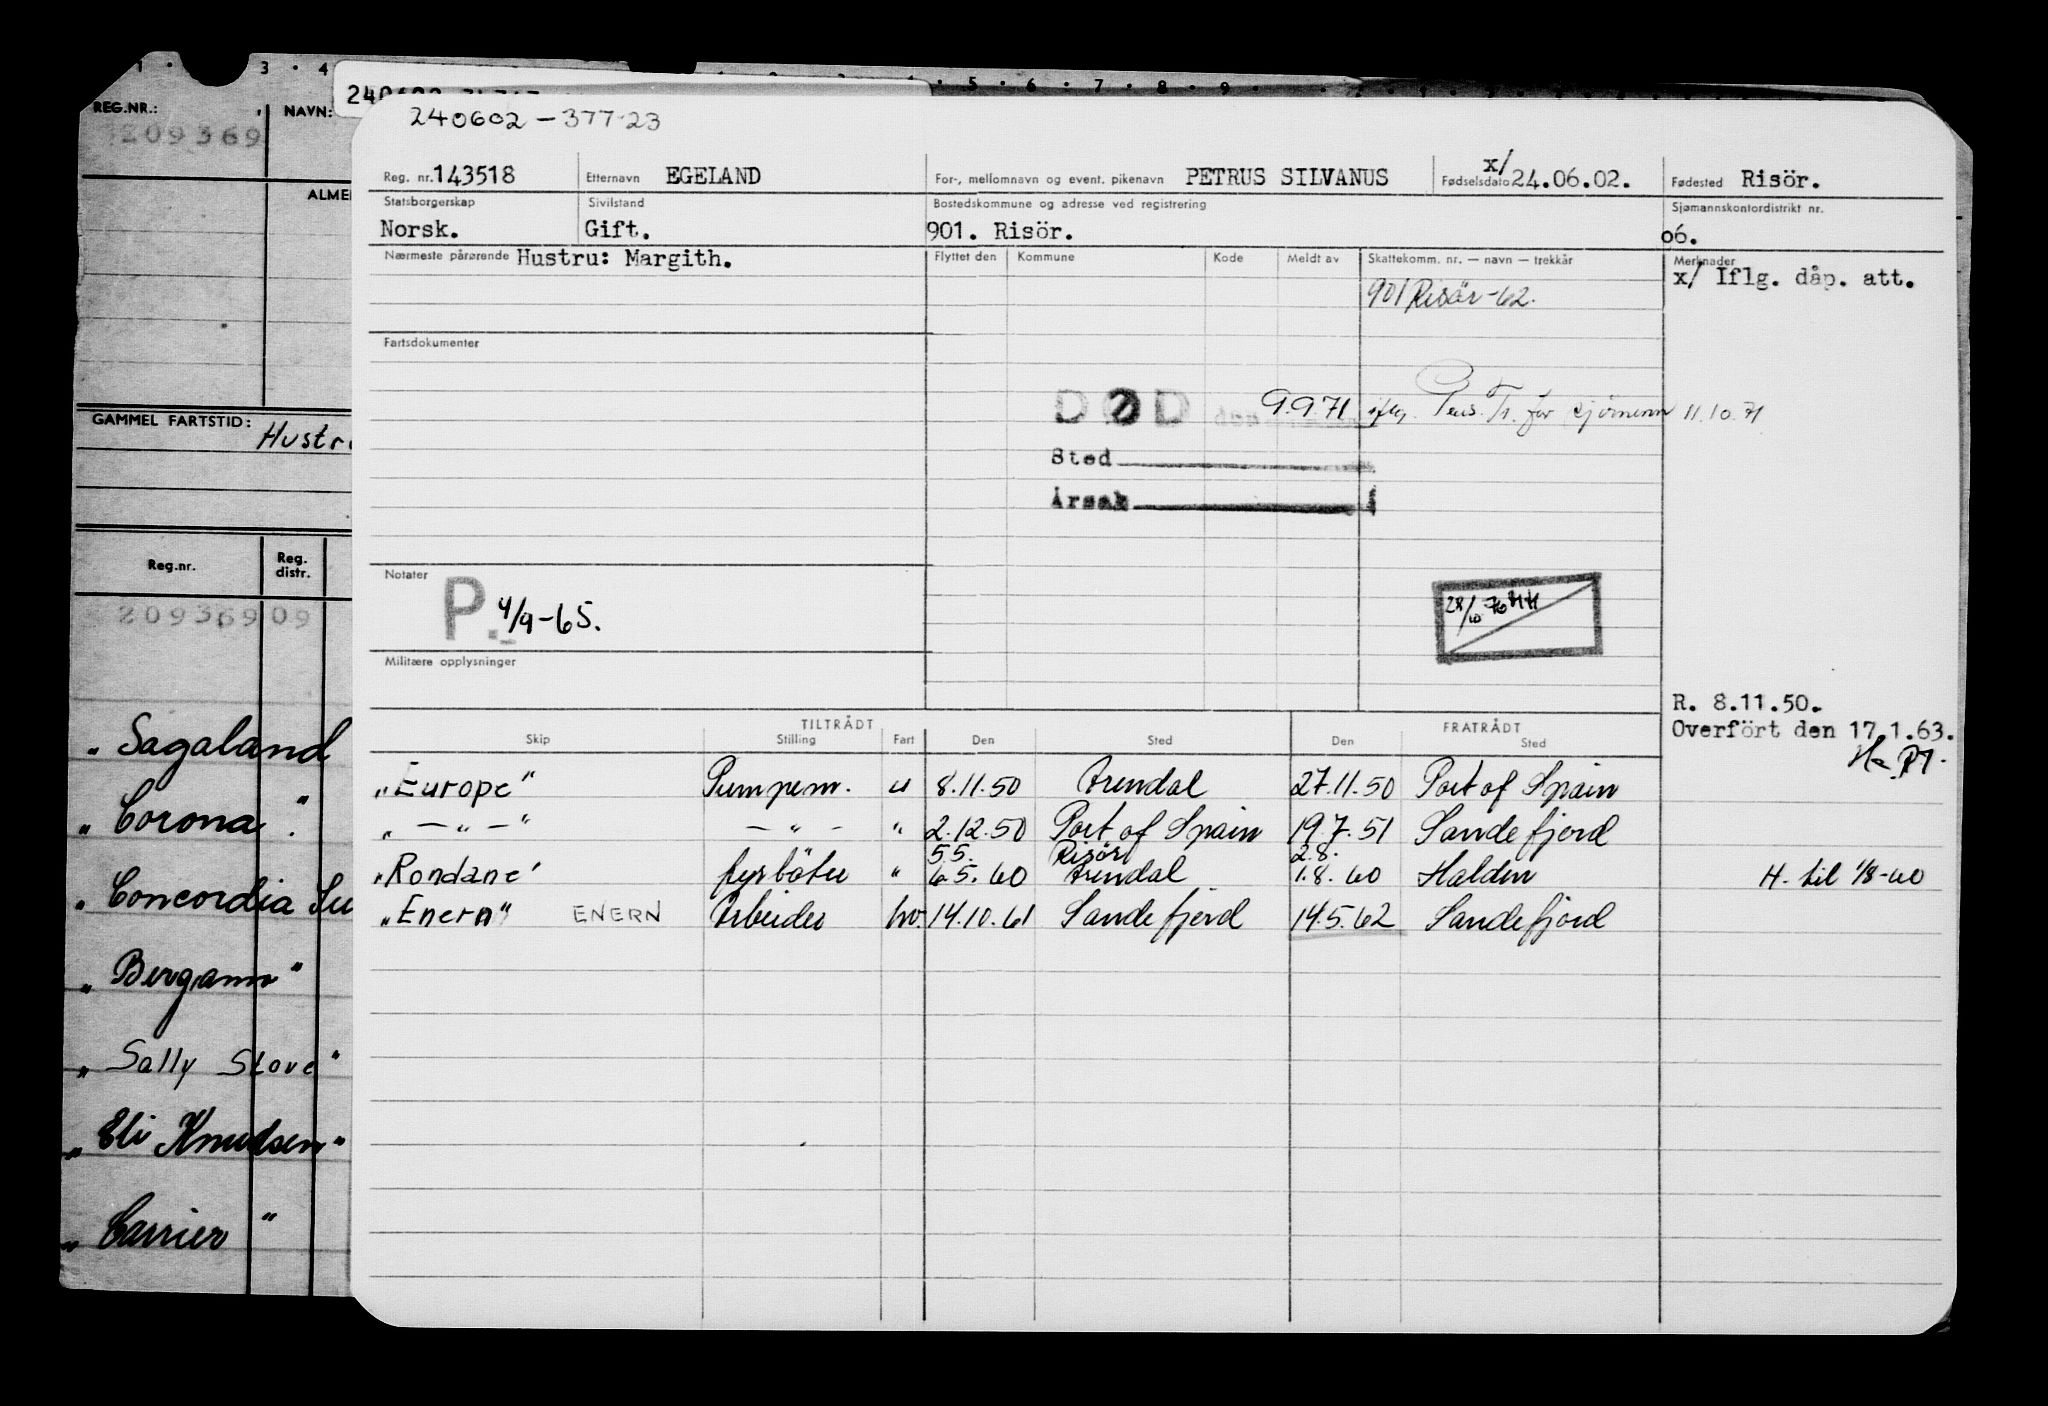 REG.NR.:
209369
NAVN:
ALME
GAMMEL FARTSTID:
Hustr
Reg.nr.
Reg. distr.
20936909
„Sagaland
„Corona"
„Concordia
„Bergamo"
„Sally Stove"
„Eli Knudsen"
„Carrier"
240602-377 23
Reg. nr. 143518 Etternavn EGELAND For-, mellomnavn og event. pikenavn PETRUS SILVANUS Fødselsdato x/ 24.06.02. Fødested Risör.
Statsborgerskap Sivilstand Bostedskommune og adresse ved registrering Sjømannskontordistrikt nr.
Norsk. Gift. 901. Risör. 06.
Nærmeste pårørende Hustru: Margith. Flyttet den Kommune Kode Meldt av Skattekomm. nr. — navn — trekkår Merknader
x/ Iflg. dåp. att.
901 Risör-62.
Fartsdokumenter
DØD den 9.9.71 iflg. Pens. Tr. for sjømenn 11.10.71
Sted
Årsak
Notater
P. 4/9-65.
28/10-76 HH
Militære opplysninger
R. 8.11.50.
Overfört den 17.1.63.
TILTRÅDT FRATRÅDT
Skip Stilling Fart Den Sted Den Sted
„Europe" Pumpem. u 8.11.50 Arendal 27.11.50 Port of Spain
„ — „ — " — „ — „ 2.12.50 Port of Spain 19.7.51 Sandefjord
5.5. Risör 2.8.
„Rondane" fyrböter „ 6.5.60 Arendal 1.8.60 Halden H. til 1/8-60
„Enern" ENERN Arbeider hv. 14.10.61 Sandefjord 14.5.62 Sandefjord